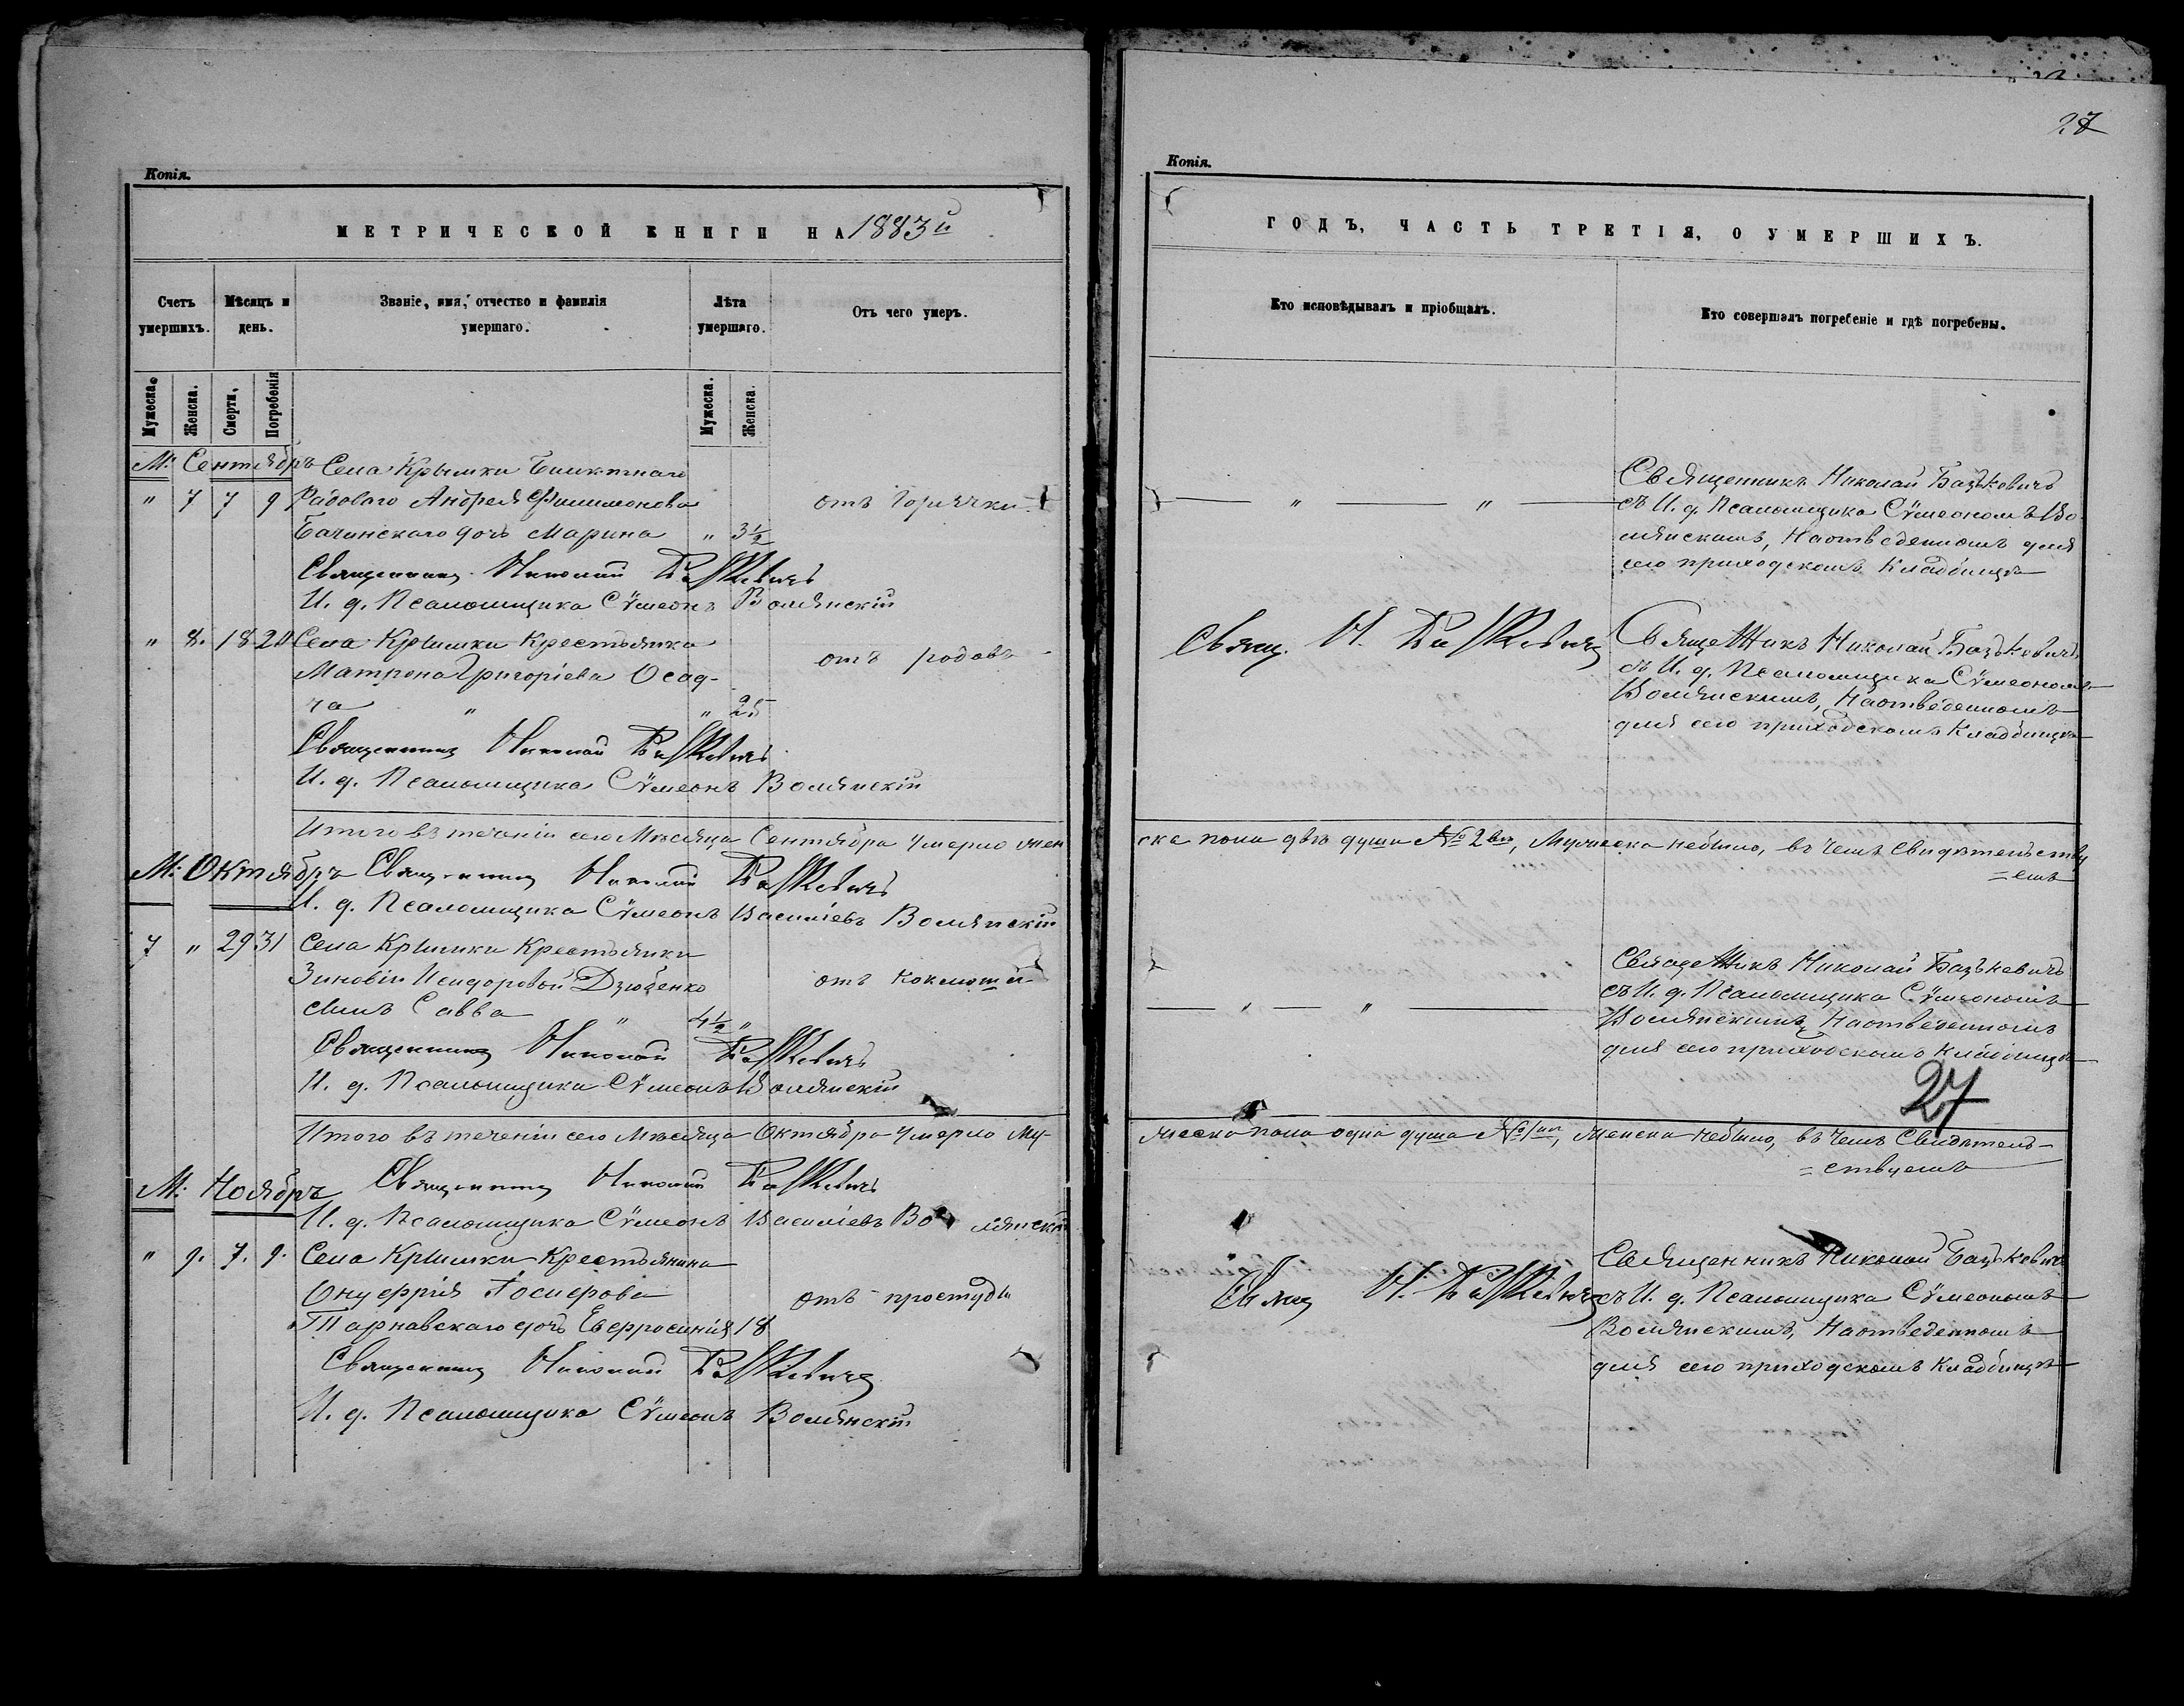 Копія.
МЕТРИЧЕСКОЙ КНИГИ НА 1883й
Счетъ умершихъ.
Мѣсяцъ и день.
Званіе, имя, отчество и фамилія умершаго.
Лѣта умершаго.
Отъ чего умеръ.
Мужеска.
Женска.
Смерти.
Погребенія
Мужеска.
Женска.
М. Сентябрь Села Крымки
" 7 7 9 Рядоваго Андрея Филимонова отъ горячки
Бачинскаго дочь Марина " 3½
Священникъ Николай Базькевичъ
И. д. Псаломщика Сѵмеонъ Волянскій
" 8. 18 20 Села Крымки Крестьянка
Матрона Григоріева Осад- отъ родовъ
ча " " 25
Священникъ Николай Базькевичъ
И. д. Псаломщика Сѵмеонъ Волянскій
Итого въ теченіи сего Мѣсяца Сентября умерло жен
М: Октябрь Священникъ Николай Базькевичъ
И. д. Псаломщика Сѵмеонъ Василіевъ Волянскій
7 " 29 31 Села Крымки Крестьянки
Зиновіи Исидоровой Дзюбенко отъ коклюша
сынъ Савва " 4½ "
Священникъ Николай Базькевичъ
И. д. Псаломщика Сѵмеонъ Волянскій
Итого въ теченіи сего Мѣсяца Октября умерло му-
М: Ноябрь Священникъ Николай Базькевичъ
И. д. Псаломщика Сѵмеонъ Василіевъ Волянскій
" 9. 7. 9. Села Крымки Крестьянина
Онуфрія отъ простуды
Тарнавскаго дочь Евфросинія 18
Священникъ Николай Базькевичъ
И. д. Псаломщика Сѵмеонъ Волянскій
27
Копія.
ГОДЪ, ЧАСТЬ ТРЕТІЯ, О УМЕРШИХЪ.
Кто исповѣдывалъ и пріобщалъ.
Кто совершалъ погребеніе и гдѣ погребены.
Священникъ Николай Базькевичъ
" " съ И. д. Псаломщика Сѵмеономъ Во
лянскимъ, На отведенномъ для
сего приходскомъ кладбищѣ
Свящ. Н. Базькевичъ Священникъ Николай Базькевичъ
съ И. д. Псаломщика Сѵмеономъ
Волянскимъ, На отведенномъ
для сего приходскомъ Кладбищѣ
ска пола двѣ души № 2, Мужеска небыло, въ чемъ свидѣтельству
=емъ
Священникъ Николай Базькевичъ
съ И. д. Псаломщика Сѵмеономъ
" " Волянскимъ, На отведенномъ
для сего приходскомъ кладбищѣ
27
жеска пола одна душа № 1, женска небыло, въ чемъ Свидѣтель-
=ствуемъ
Священникъ Николай Базькевичъ
Свящ Н. Базькевичъ съ И. д. Псаломщика Сѵмеономъ
Волянскимъ, На отведенномъ
для сего приходскомъ кладбищѣ